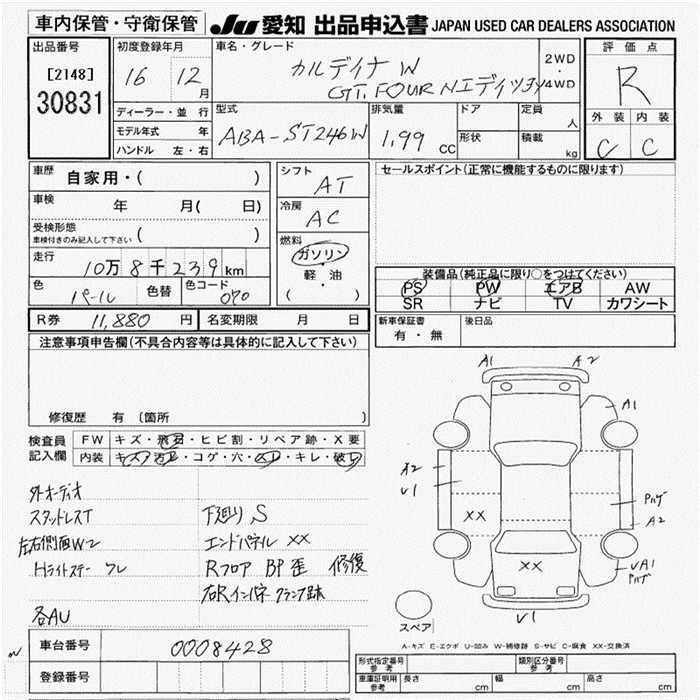 車内保管・守衛保管 JU 愛知 出品申込書 JAPAN USED CAR DEALERS ASSOCIATION
出品番号
[2148]
30831
初度登録年月
16 12 月
車名・グレード
カルディナ W
GT.FOUR Nエディッション
2WD
4WD
評価点
R
外装 内装
C C
ディーラー・並行
モデル年式 年
ハンドル 左・右
型式
ABA-ST246W
排気量
1.99 CC
ドア
形状
定員
人
積載
kg
車歴 自家用・( )
車検 年 月( 日)
受検形態
車検付きのみ記入して下さい ( )
走行 10万8千239km
色 パール 色替 色コード 070
シフト AT
冷房 AC
燃料
ガソリン
・
軽・油
( )
セールスポイント(正常に機能するものに限ります)
装備品(純正品に限り○をつけてください)
PS PW エアB AW
SR ナビ TV カワシート
R券 11,880 円 名変期限 月 日
新車保証書
有・無
後日品
注意事項申告欄(不具合内容等は具体的に記入して下さい)
修復歴 有(箇所 )
検査員
記入欄
FW キズ・飛石・ヒビ割・リペア跡・X要
内装 キズ・汚レ・コゲ・穴・スレ・キレ・破レ
外オーディオ
スタッドレスT
左右側面W2
Hライトステー ワレ
各AU
下廻り S
エンドパネル XX
Rフロア BP歪 修復
右Rインパネ クランプ跡
A1 A2
A1
A2
V1
XX
パハゲ
A2
XX
VA1
パハゲ
V1
スペア
A-キズ E-エクボ U-凹み W-補修跡 S-サビ C-腐食 XX-交換済
車台番号 0008428
登録番号
形式指定番号
参考
類別区分番号
参考
車庫証明用
参考
長さ cm 幅 cm 高さ cm